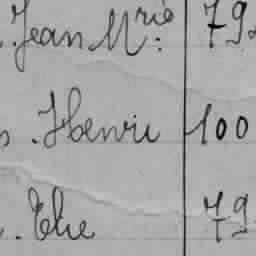 Jean Mrie: 79
s. Henri 100
. Elie 79